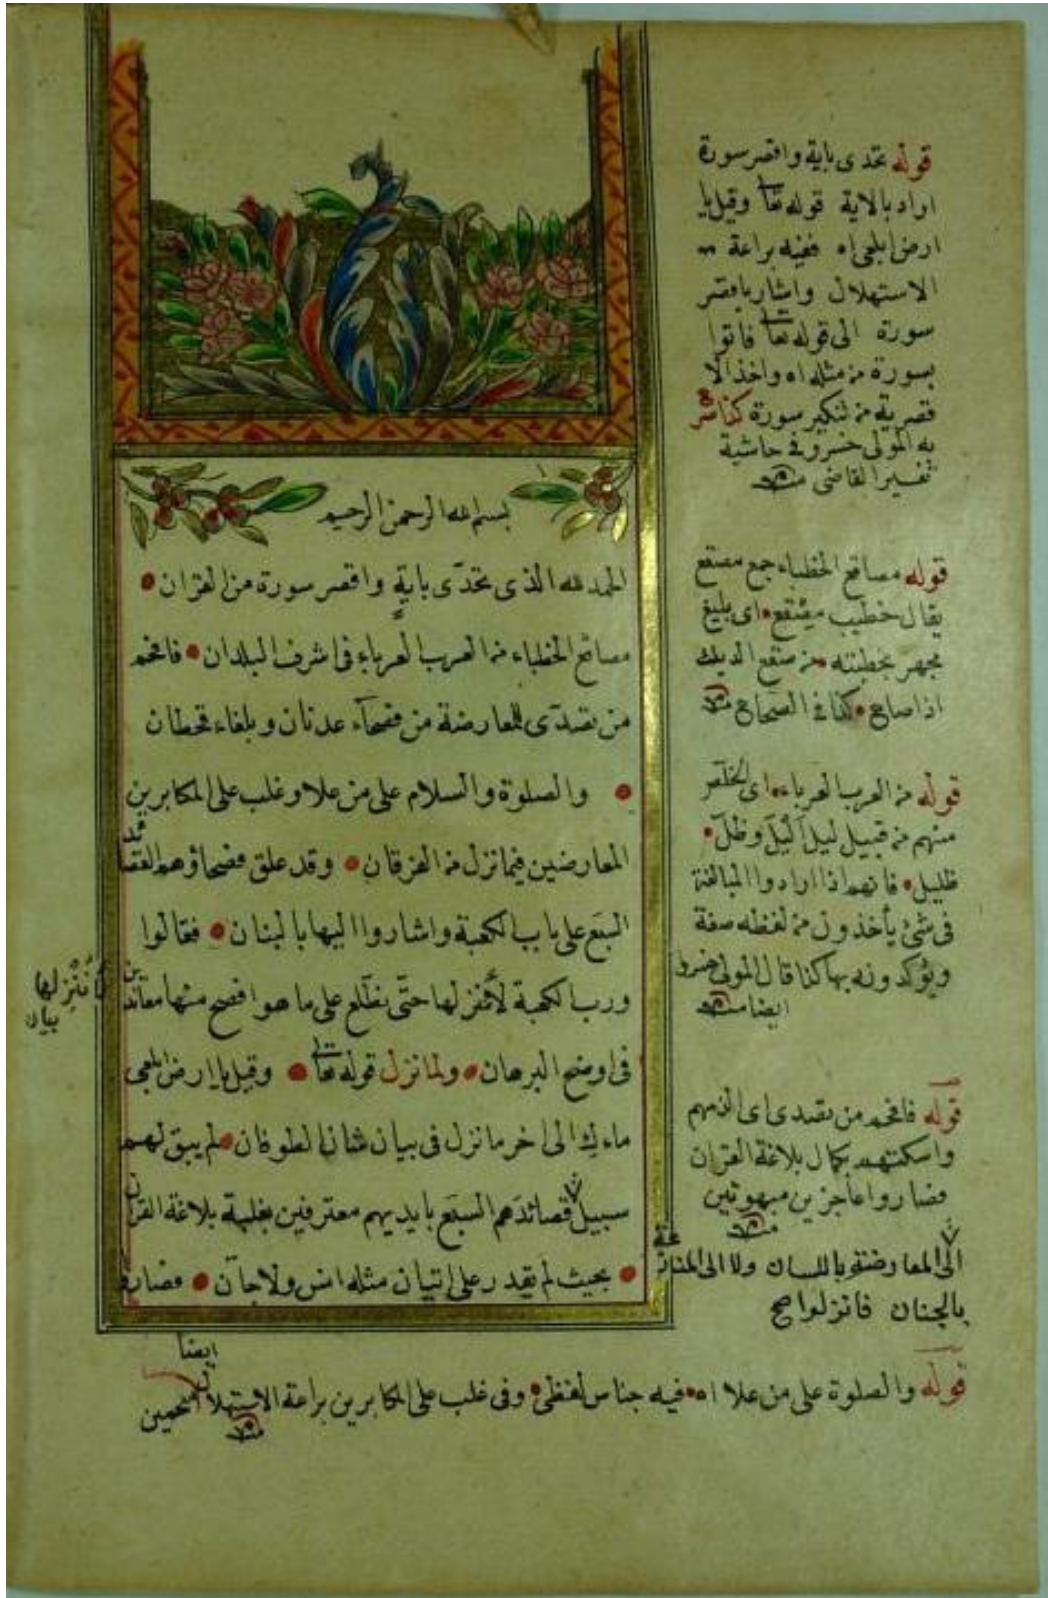 بسم الله الرحمن الرحيم
الحمد لله الذى تحدّى باية واقصر سورة من القران
مصاقع الخطباء من العرب العرباء فى اشرف البلدان فافحم
من تصدّى للمعارضة من فصحاء عدنان وبلغاء قحطان
والصلوة والسلام على من علا وغلب على المكابرين
المعارضين فيما نزل من الفرقان وقد علق فصحاؤهم القصائد
السبع على باب الكعبة واشاروا اليها بالبنان فقالوا
ورب الكعبة لا ننزلها حتّى نطّلع على ما هو افصح منها معاندين
فى اوضح البرهان ولما نزل قوله تعالى وقيل يا ارض ابلعى
ماءك الى اخر ما نزل فى بيان شان الطوفان لم يبق لهم
سبيل قصائدهم السبع بايديهم معترفين بغلبة بلاغة القران
بحيث لم يقدر على اتيان مثله انس ولا جان فصاروا
قوله تحدى باية واقصر سورة
اراد بالاية قوله تعا وقيل يا
ارض ابلعى اه ففيه براعة
الاستهلال واشار باقصر
سورة الى قوله تعا فاتوا
بسورة من مثله اه واخذ الا
قصرية من تنكير سورة كذا صرح
به المولى خسرو فى حاشية
تفسير القاضى منه
قوله مصاقع الخطباء جمع مصقع
يقال خطيب مصقع اى بليغ
مجهر بخطبته من صقع الديك
اذا صاح كذا فى الصحاح منه
قوله من العرب العرباء اى الخلّص
منهم من قبيل ليل اليل وظل
ظليل فانهم اذا ارادوا المبالغة
فى شئ يأخذون من لفظه صفة
ويؤكدونه بها كذا قال المولى خسرو
ايضا منه
قوله فافحم من تصدى اى الزمهم
واسكتهم بكمال بلاغة القران
فصاروا عاجزين مبهوتين
منه
الى المعارضة باللسان ولا الى المنازعة
بالجنان فانزلوا صح
قوله والصلوة على من علا اه فيه جناس لفظى وفى غلب على المكابرين براعة الاستهلال
ايضا
منه
ملجمين
ننزلها
بيان